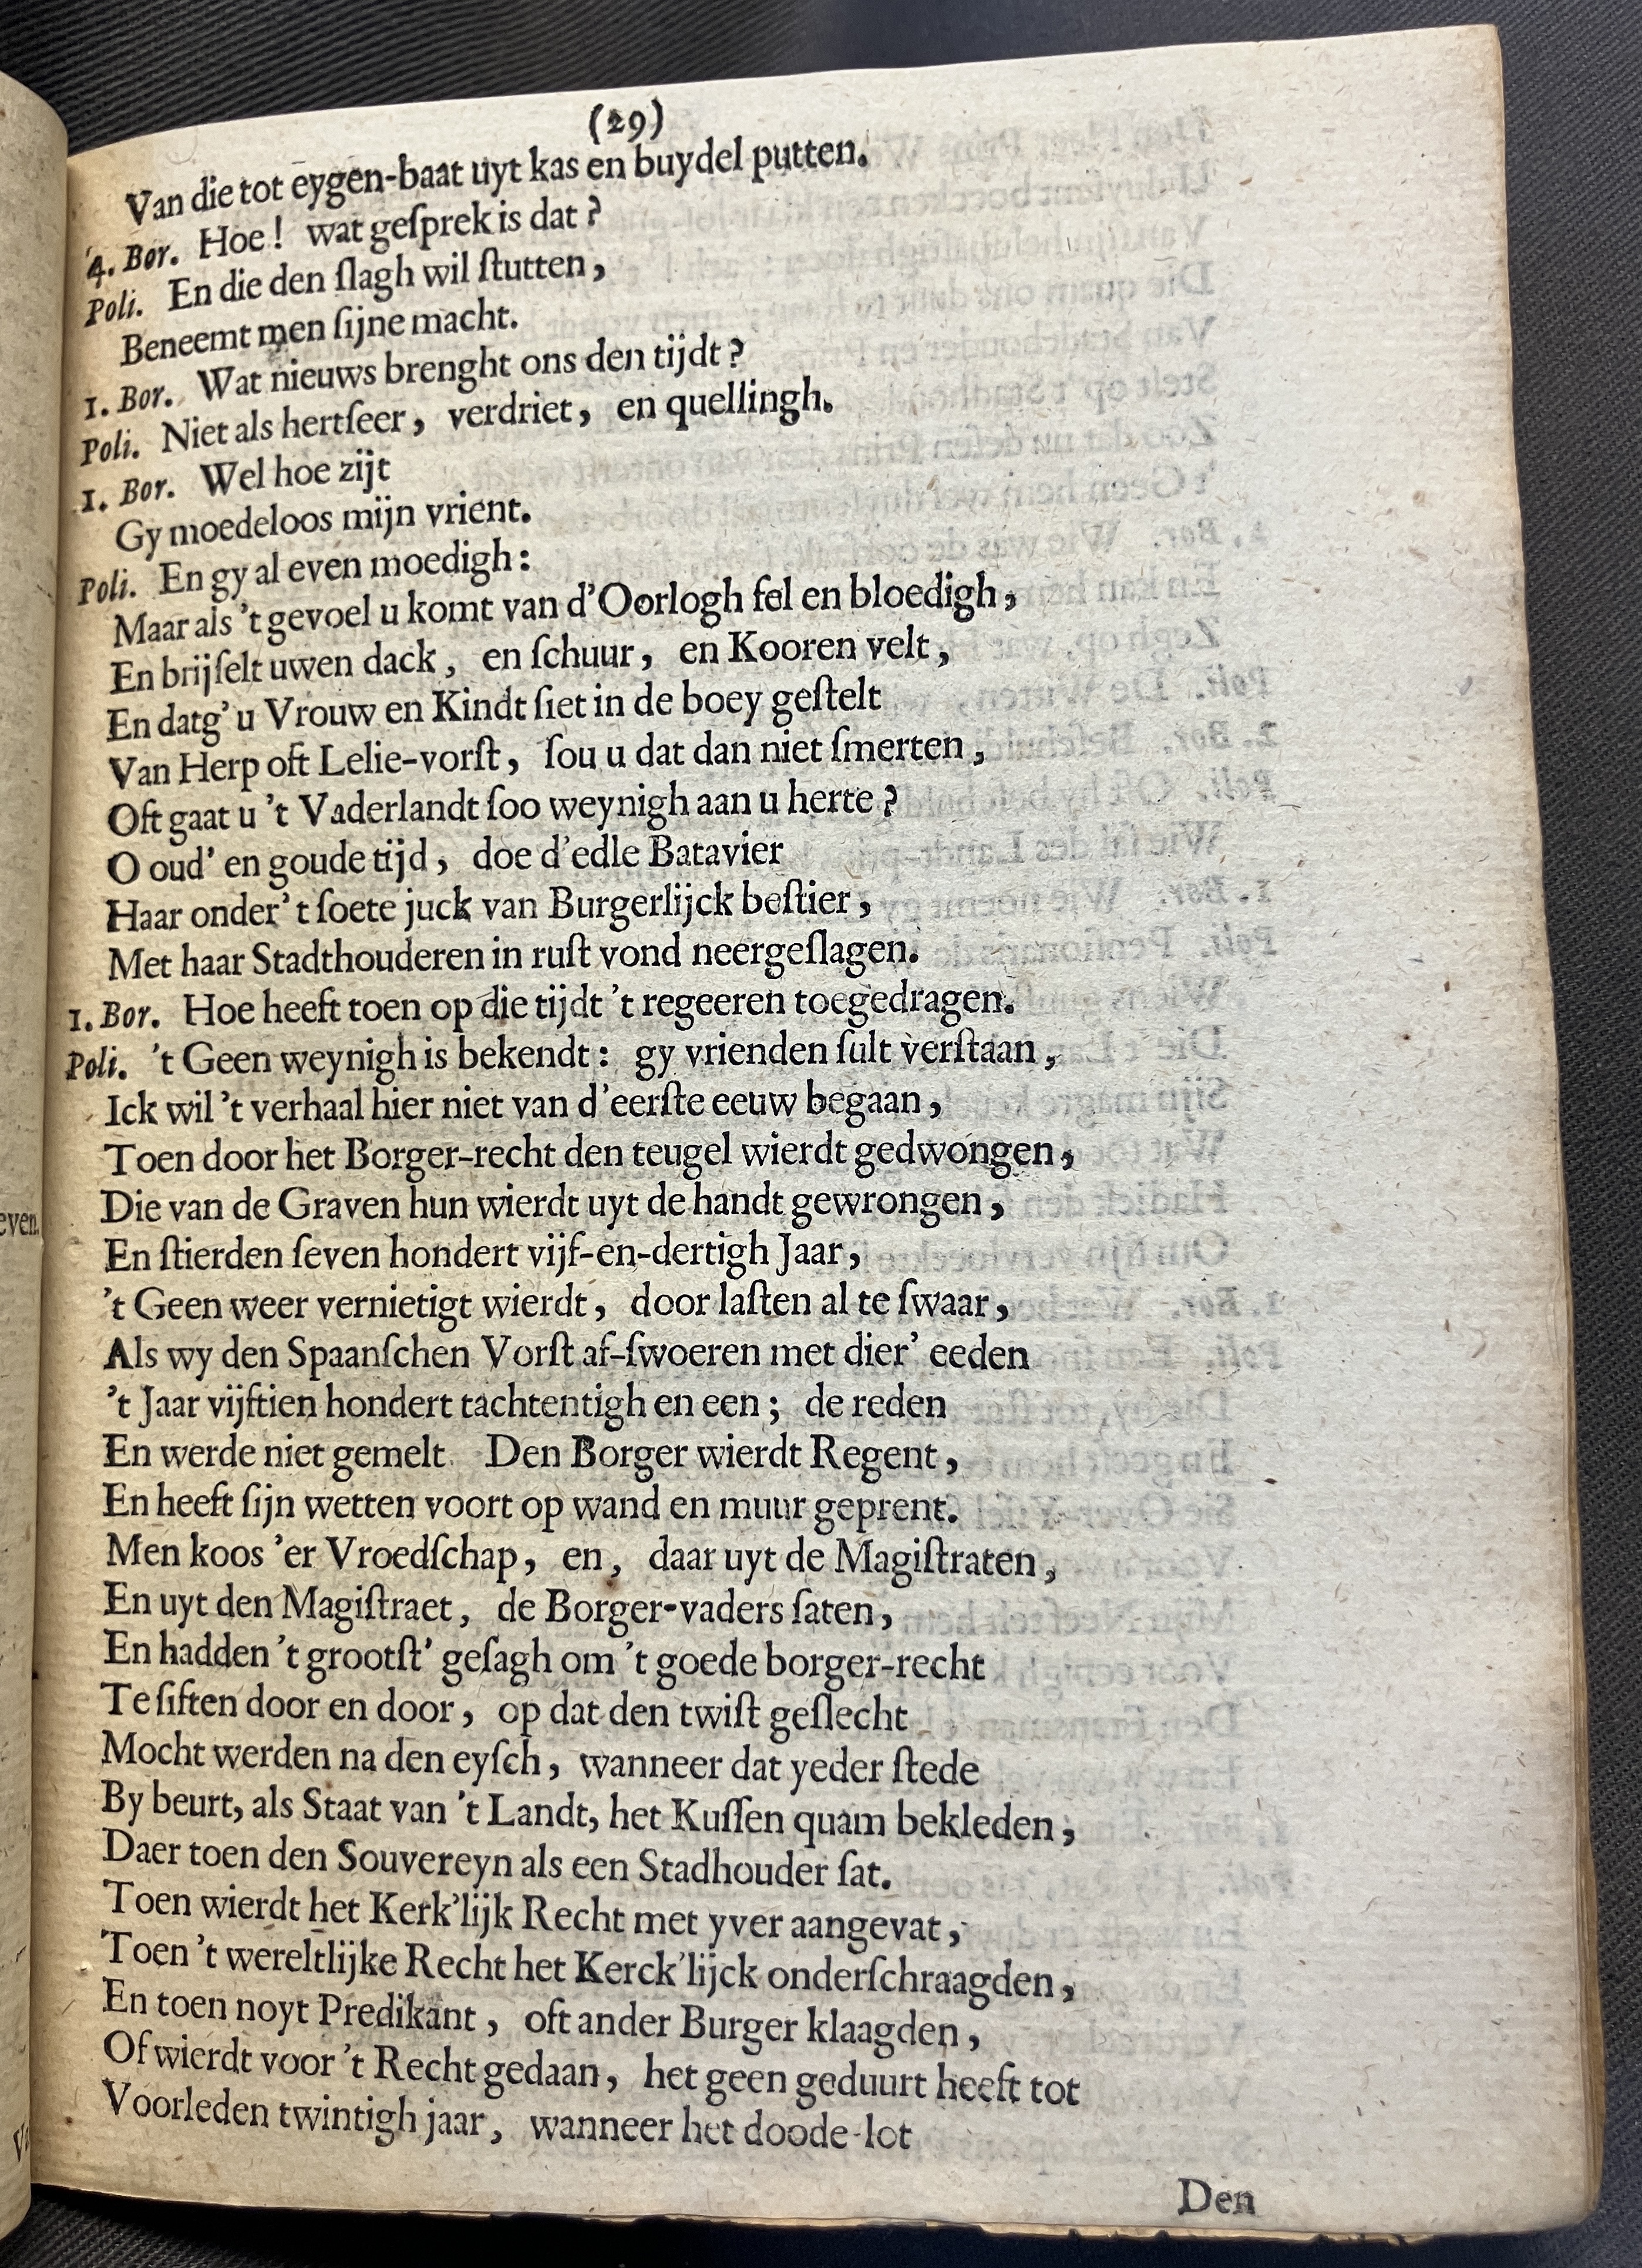 (29)
Van die tot eygen-baat uyt kas en buydel putten.
4. Bor. Hoe! wat geſprek is dat?
Poli. En die den ſlagh wil ſtutten,
Beneemt men ſijne macht.
1. Bor. Wat nieuws brenght ons den tijdt?
Poli. Niet als hertſeer, verdriet, en quellingh.
1. Bor. Wel hoe zijt
Gy moedeloos mijn vrient.
Poli. En gy al even moedigh:
Maar als 't gevoel u komt van d'Oorlogh fel en bloedigh,
En brijſelt uwen dack, en ſchuur, en Kooren velt,
En datg' u Vrouw en Kindt ſiet in de boey geſtelt
Van Herp oft Lelie-vorſt, ſou u dat dan niet ſmerten,
Oft gaat u 't Vaderlandt ſoo weynigh aan u herte?
O oud' en goude tijd, doe d'edle Batavier
Haar onder 't ſoete juck van Burgerlijck beſtier,
Met haar Stadthouderen in ruſt vond neergeſlagen.
1. Bor. Hoe heeft toen op die tijdt 't regeeren toegedragen.
Poli. 't Geen weynigh is bekendt: gy vrienden ſult verſtaan,
Ick wil 't verhaal hier niet van d'eerſte eeuw begaan,
Toen door het Borger-recht den teugel wierdt gedwongen,
Die van de Graven hun wierdt uyt de handt gewrongen,
En ſtierden ſeven hondert vijf-en-dertigh Jaar,
't Geen weer vernietigt wierdt, door laſten al te ſwaar,
Als wy den Spaanſchen Vorſt af-ſwoeren met dier' eeden
't Jaar vijftien hondert tachtentigh en een; de reden
En werde niet gemelt. Den Borger wierdt Regent,
En heeft ſijn wetten voort op wand en muur geprent.
Men koos 'er Vroedſchap, en, daar uyt de Magiſtraten,
En uyt den Magiſtraet, de Borger-vaders ſaten,
En hadden 't grootſt' geſagh om 't goede borger-recht
Te ſiften door en door, op dat den twiſt geſlecht
Mocht werden na den eyſch, wanneer dat yeder ſtede
By beurt, als Staat van 't Landt, het Kuſſen quam bekleden,
Daer toen den Souvereyn als een Stadhouder ſat.
Toen wierdt het Kerk'lijk Recht met yver aangevat,
Toen 't wereltlijke Recht het Kerck'lijck onderſchraagden,
En toen noyt Predikant, oft ander Burger klaagden,
Of wierdt voor 't Recht gedaan, het geen geduurt heeft tot
Voorleden twintigh jaar, wanneer het doode-lot
Den
even.